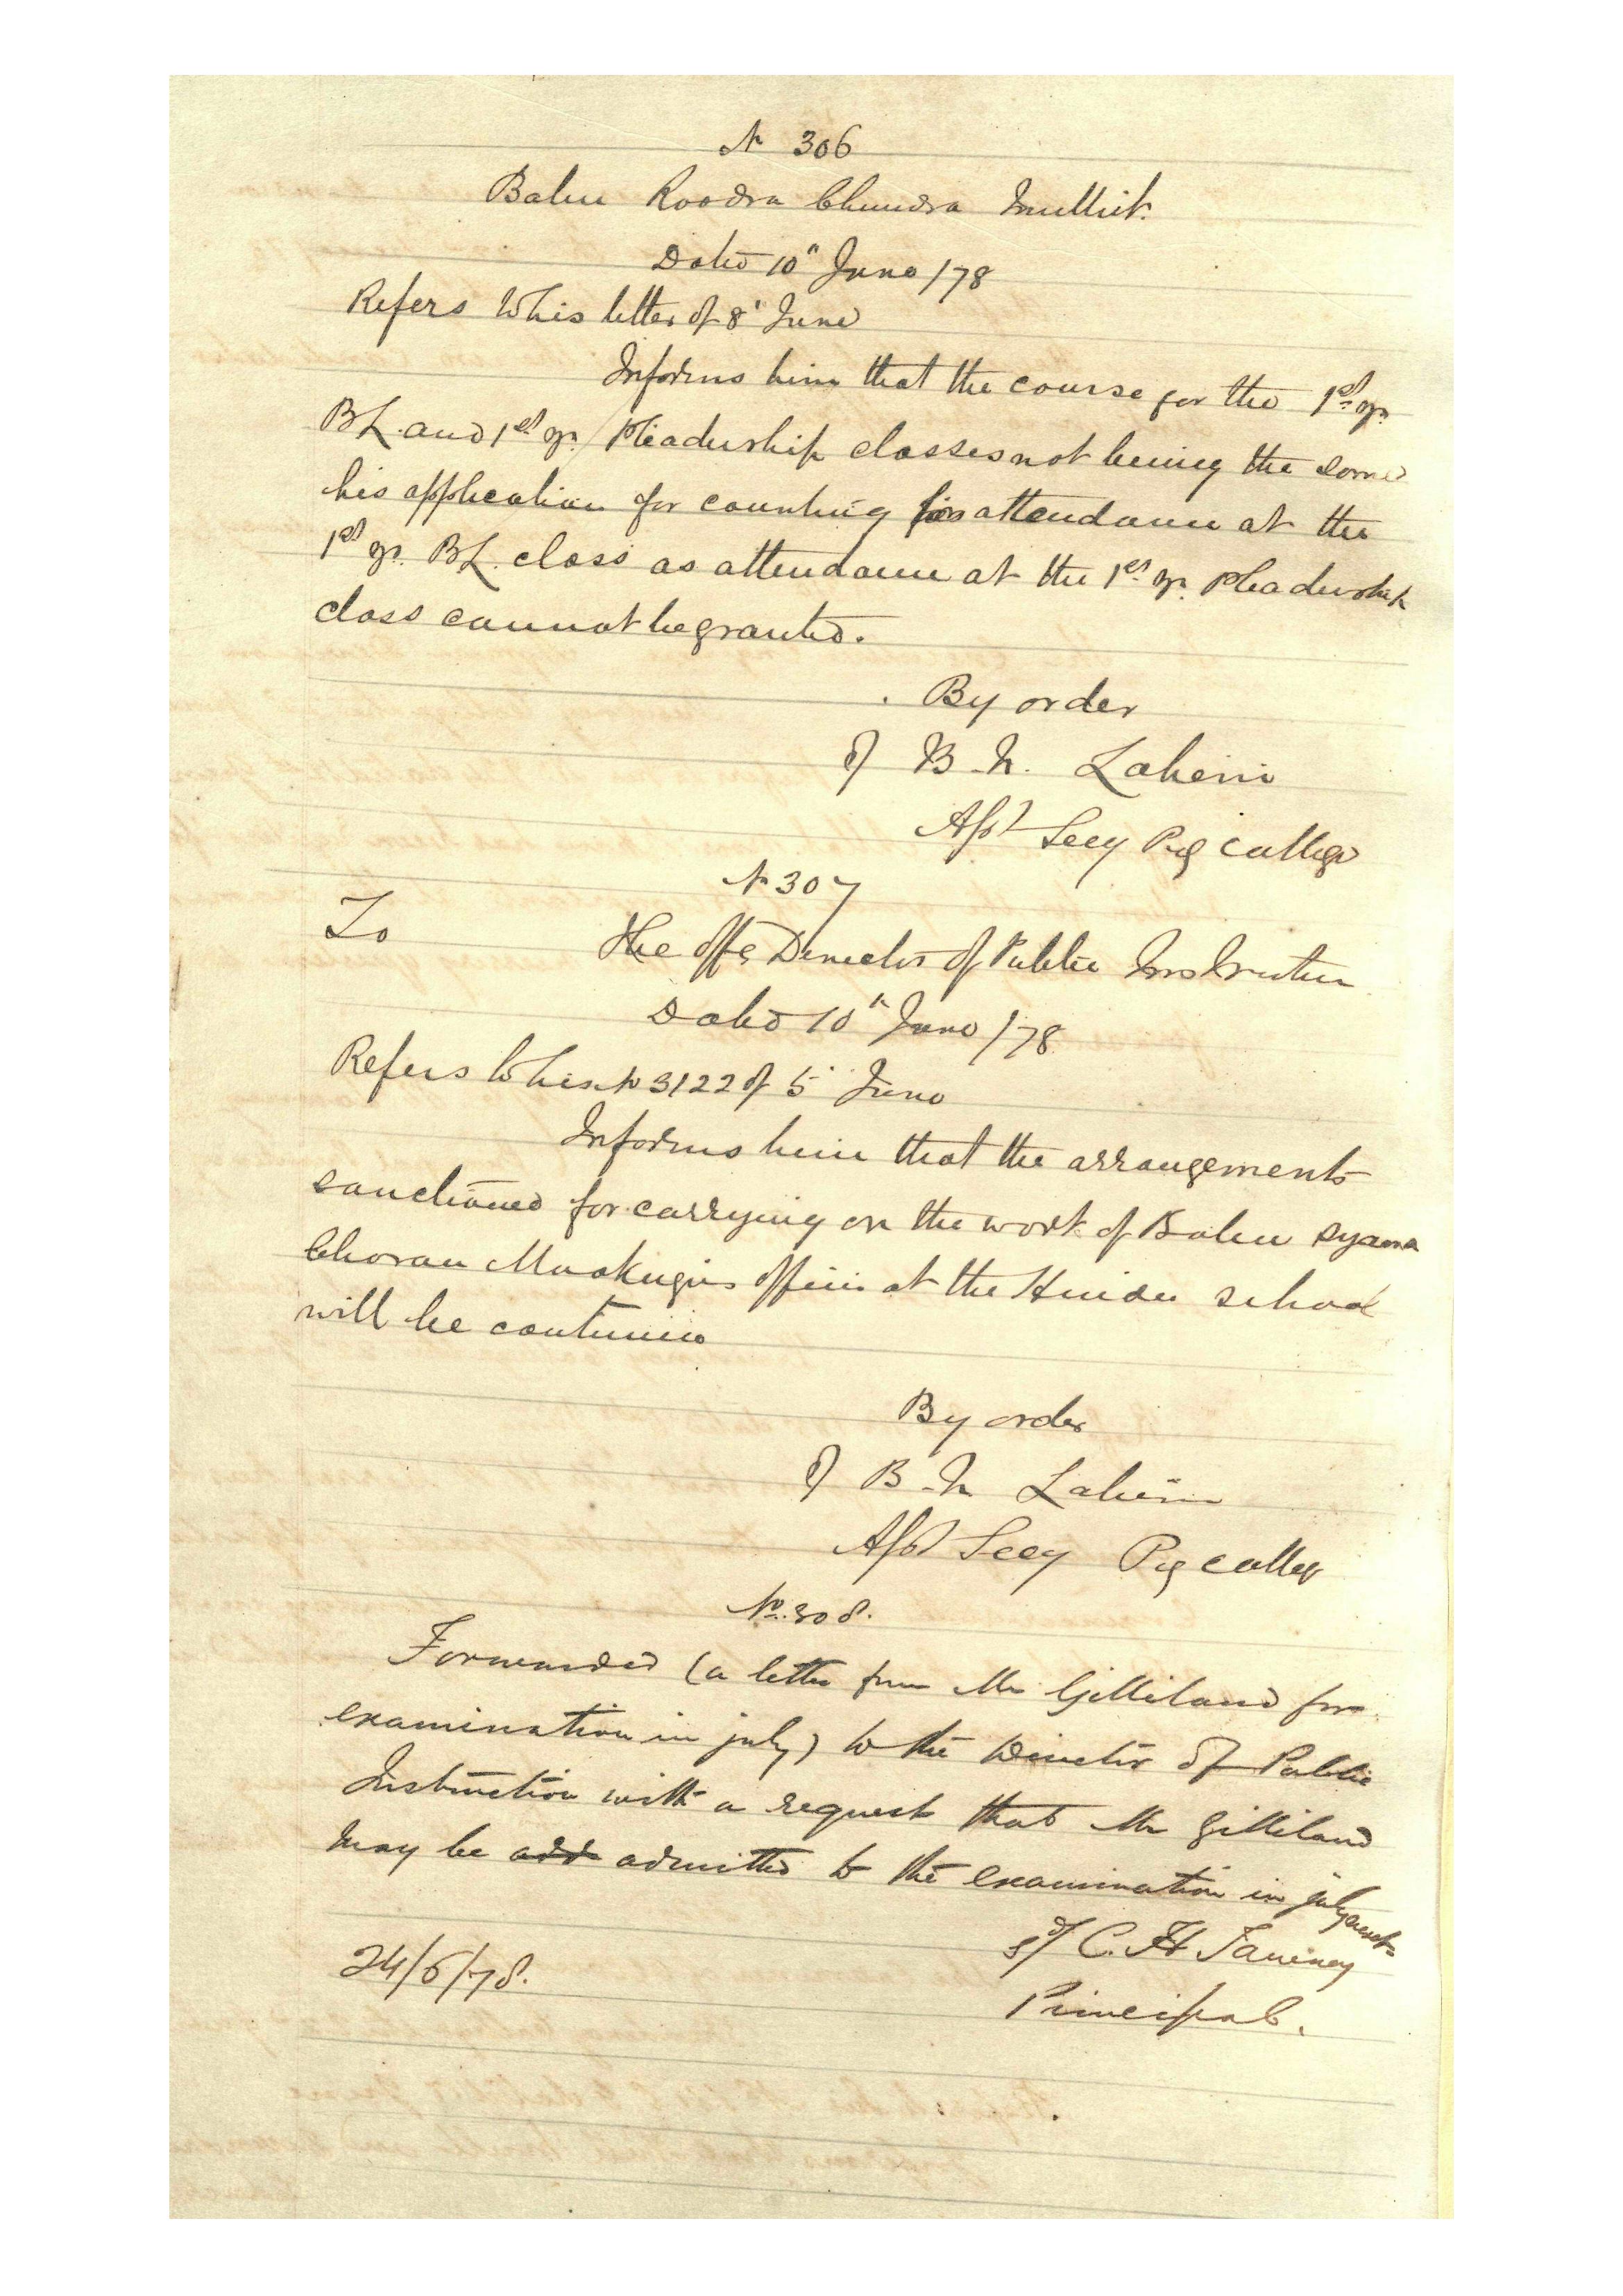 No 306
Babu Roodra Chundra Mullick.
Dated 10th June /78
Refers to his letter of 8th June
Informs him that the course for the 1st yr.
BL. and 1st yr. Pleadership classes not being the same
his application for counting his attendance at the
1st yr. BL. class as attendance at the 1st yr. Pleadership
class cannot be granted.
By order
B. N. Laheri
Asst Secy College
No 307
To The Offg Director of Public Instruction
Dated 10th June /78
Refers to his No 3122 of 5th June
Informs him that the arrangements
sanctioned for carrying on the work of Babu Syama
Choran Mookerjis office at the Hindu School
will be continued
By order
B. N. Laheri
Asst Secy College
No. 308.
Forwarded (a letter from Mr Gilliland for
examination in july) to the Director of Public
Instruction with a request that Mr Gilliland
may be add admitted to the examination in july next
24/6/78. C. H Tawney
Principal.